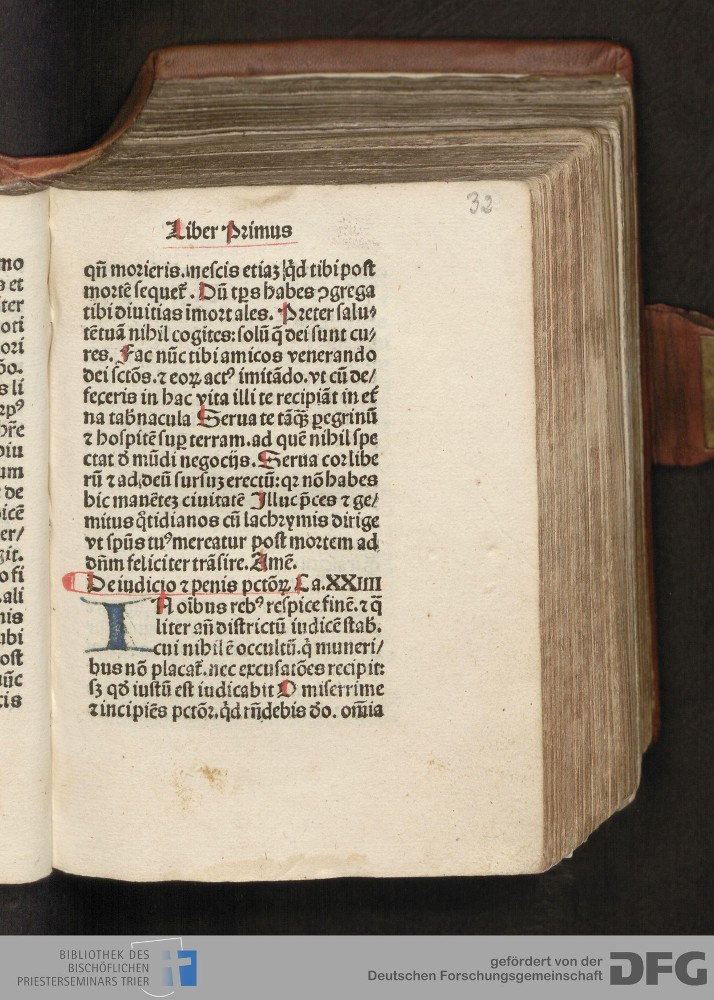 mo
s et
ter
oti
ori
ōo.
s li
xpꝰ
hr̄e
diu
um
de
icē
er/
zit.
o fi
.ali
nis
ubi
ost
nūc
cis
32
Liber Primus
qn̄ morieris. nescis etiaꝫ qͥd tibi post
mortē sequet᷑. Dū tp̄s habes ꝯgrega
tibi diuitias īmortales. Preter salu⸗
tē tuā nihil cogites: solū q̄ dei sunt cu⸗
res. Fac nūc tibi amicos venerando
dei sc̄tōs. ⁊ eoꝝ actꝰ imitādo. vt cū de/
feceris in hac vita illi te recipiāt in et̄
na tab̄nacula Serua te tāqꝫ ꝑegrinū
⁊ hospitē suꝑ terram. ad quē nihil spe
ctat ð mūdi negocijs. Serua cor libe
rū ⁊ ad deū sursuꝫ erectū: qr nō habes
hic manēteꝫ ciuitatē Illuc p̄ces ⁊ ge/
mitus qͦtidianos cū lachrymis dirige
vt sp̄us tuꝰ mereatur post mortem ad
dn̄m feliciter trāsire. Amē.
De iudicio ⁊ penis pctōꝝ Ca. XXIIII
IN oībus rebꝰ respice finē. ⁊ q̄
liter an̄ districtū iudicē stab.
cui nihil ē occultū. q̇ muneri/
bus nō placat᷑. nec excusatōes recipit:
sꝫ qð iustū est iudicabit O miserrime
⁊ incipiēs pctōꝛ. qͥd rn̄debis ðo. om̄ia
BIBLIOTHEK DES
BISCHÖFLICHEN
PRIESTERSEMINARS TRIER
gefördert von der
Deutschen Forschungsgemeinschaft
DFG